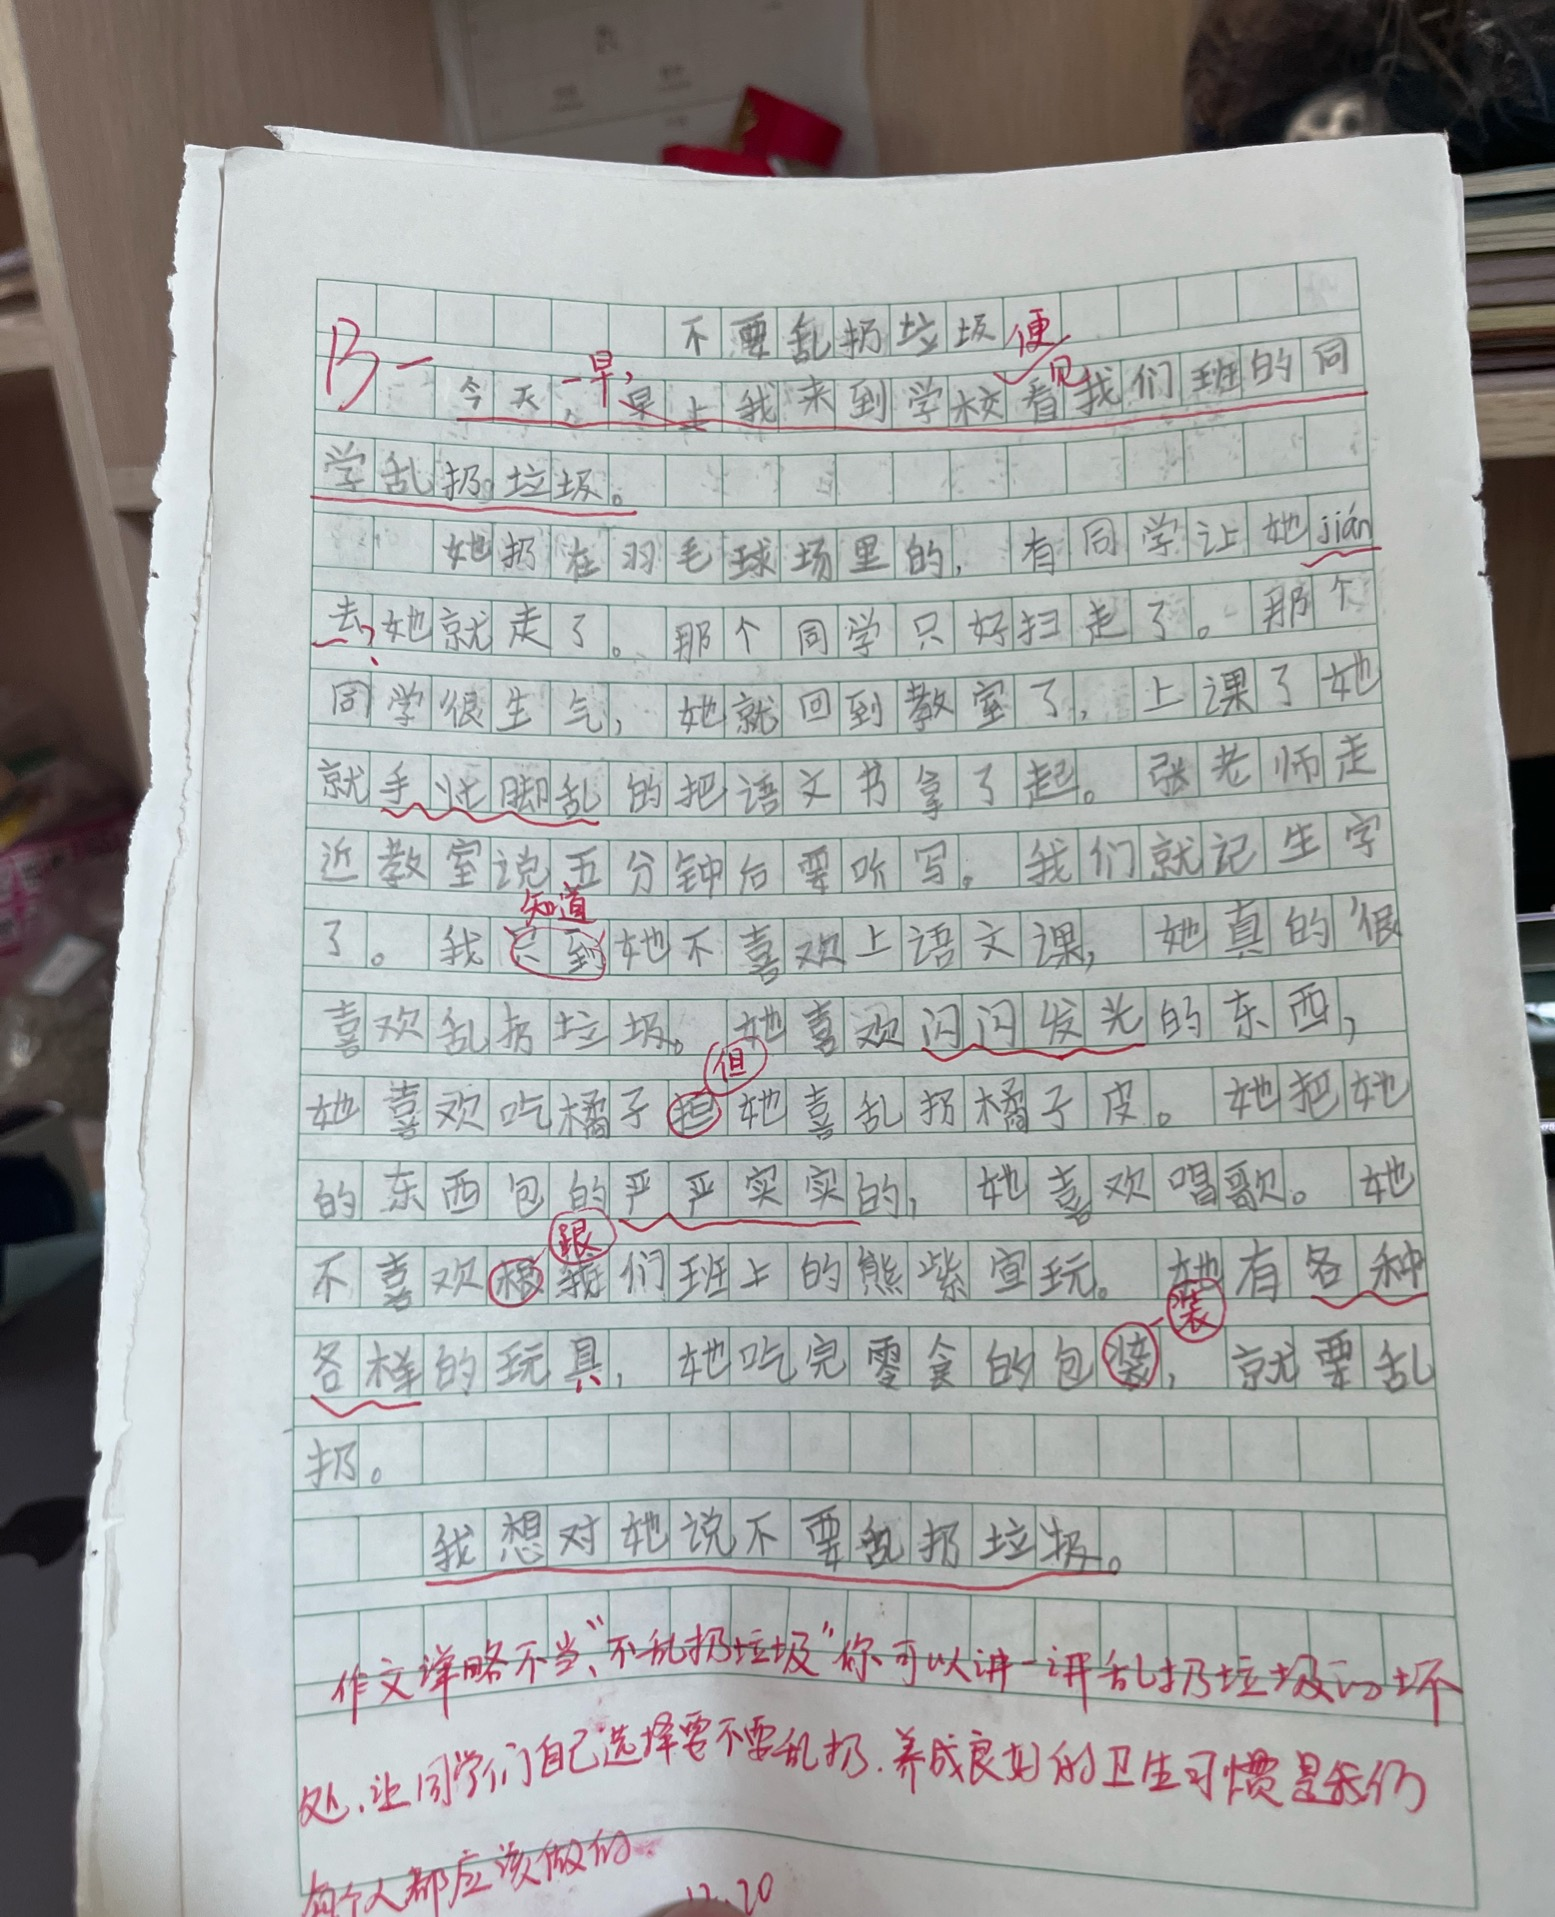 不要乱扔垃圾
B-
一早，便见
今天，早上我来到学校看我们班的同
学乱扔垃圾。
她扔在羽毛球场里的，有同学让她jián
去，她就走了。那个同学只好扫走了。那个
同学很生气，她就回到教室了，上课了她
就手忙脚乱的把语文书拿了起。张老师走
近教室说五分钟后要听写。我们就记生字
知道
了。我只到她不喜欢上语文课，她真的很
喜欢乱扔垃圾。她喜欢闪闪发光的东西，
但
她喜欢吃橘子担她喜乱扔橘子皮。她把她
的东西包的严严实实的，她喜欢唱歌。她
跟
不喜欢根我们班上的熊紫宣玩。她有各种
装
各样的玩具，她吃完零食的包装，就要乱
扔。
我想对她说不要乱扔垃圾。
作文详略不当，“不乱扔垃圾”你可以讲一讲乱扔垃圾的坏
处，让同学们自己选择要不要乱扔.养成良好的卫生习惯是我们
每个人都应该做的.
12.20